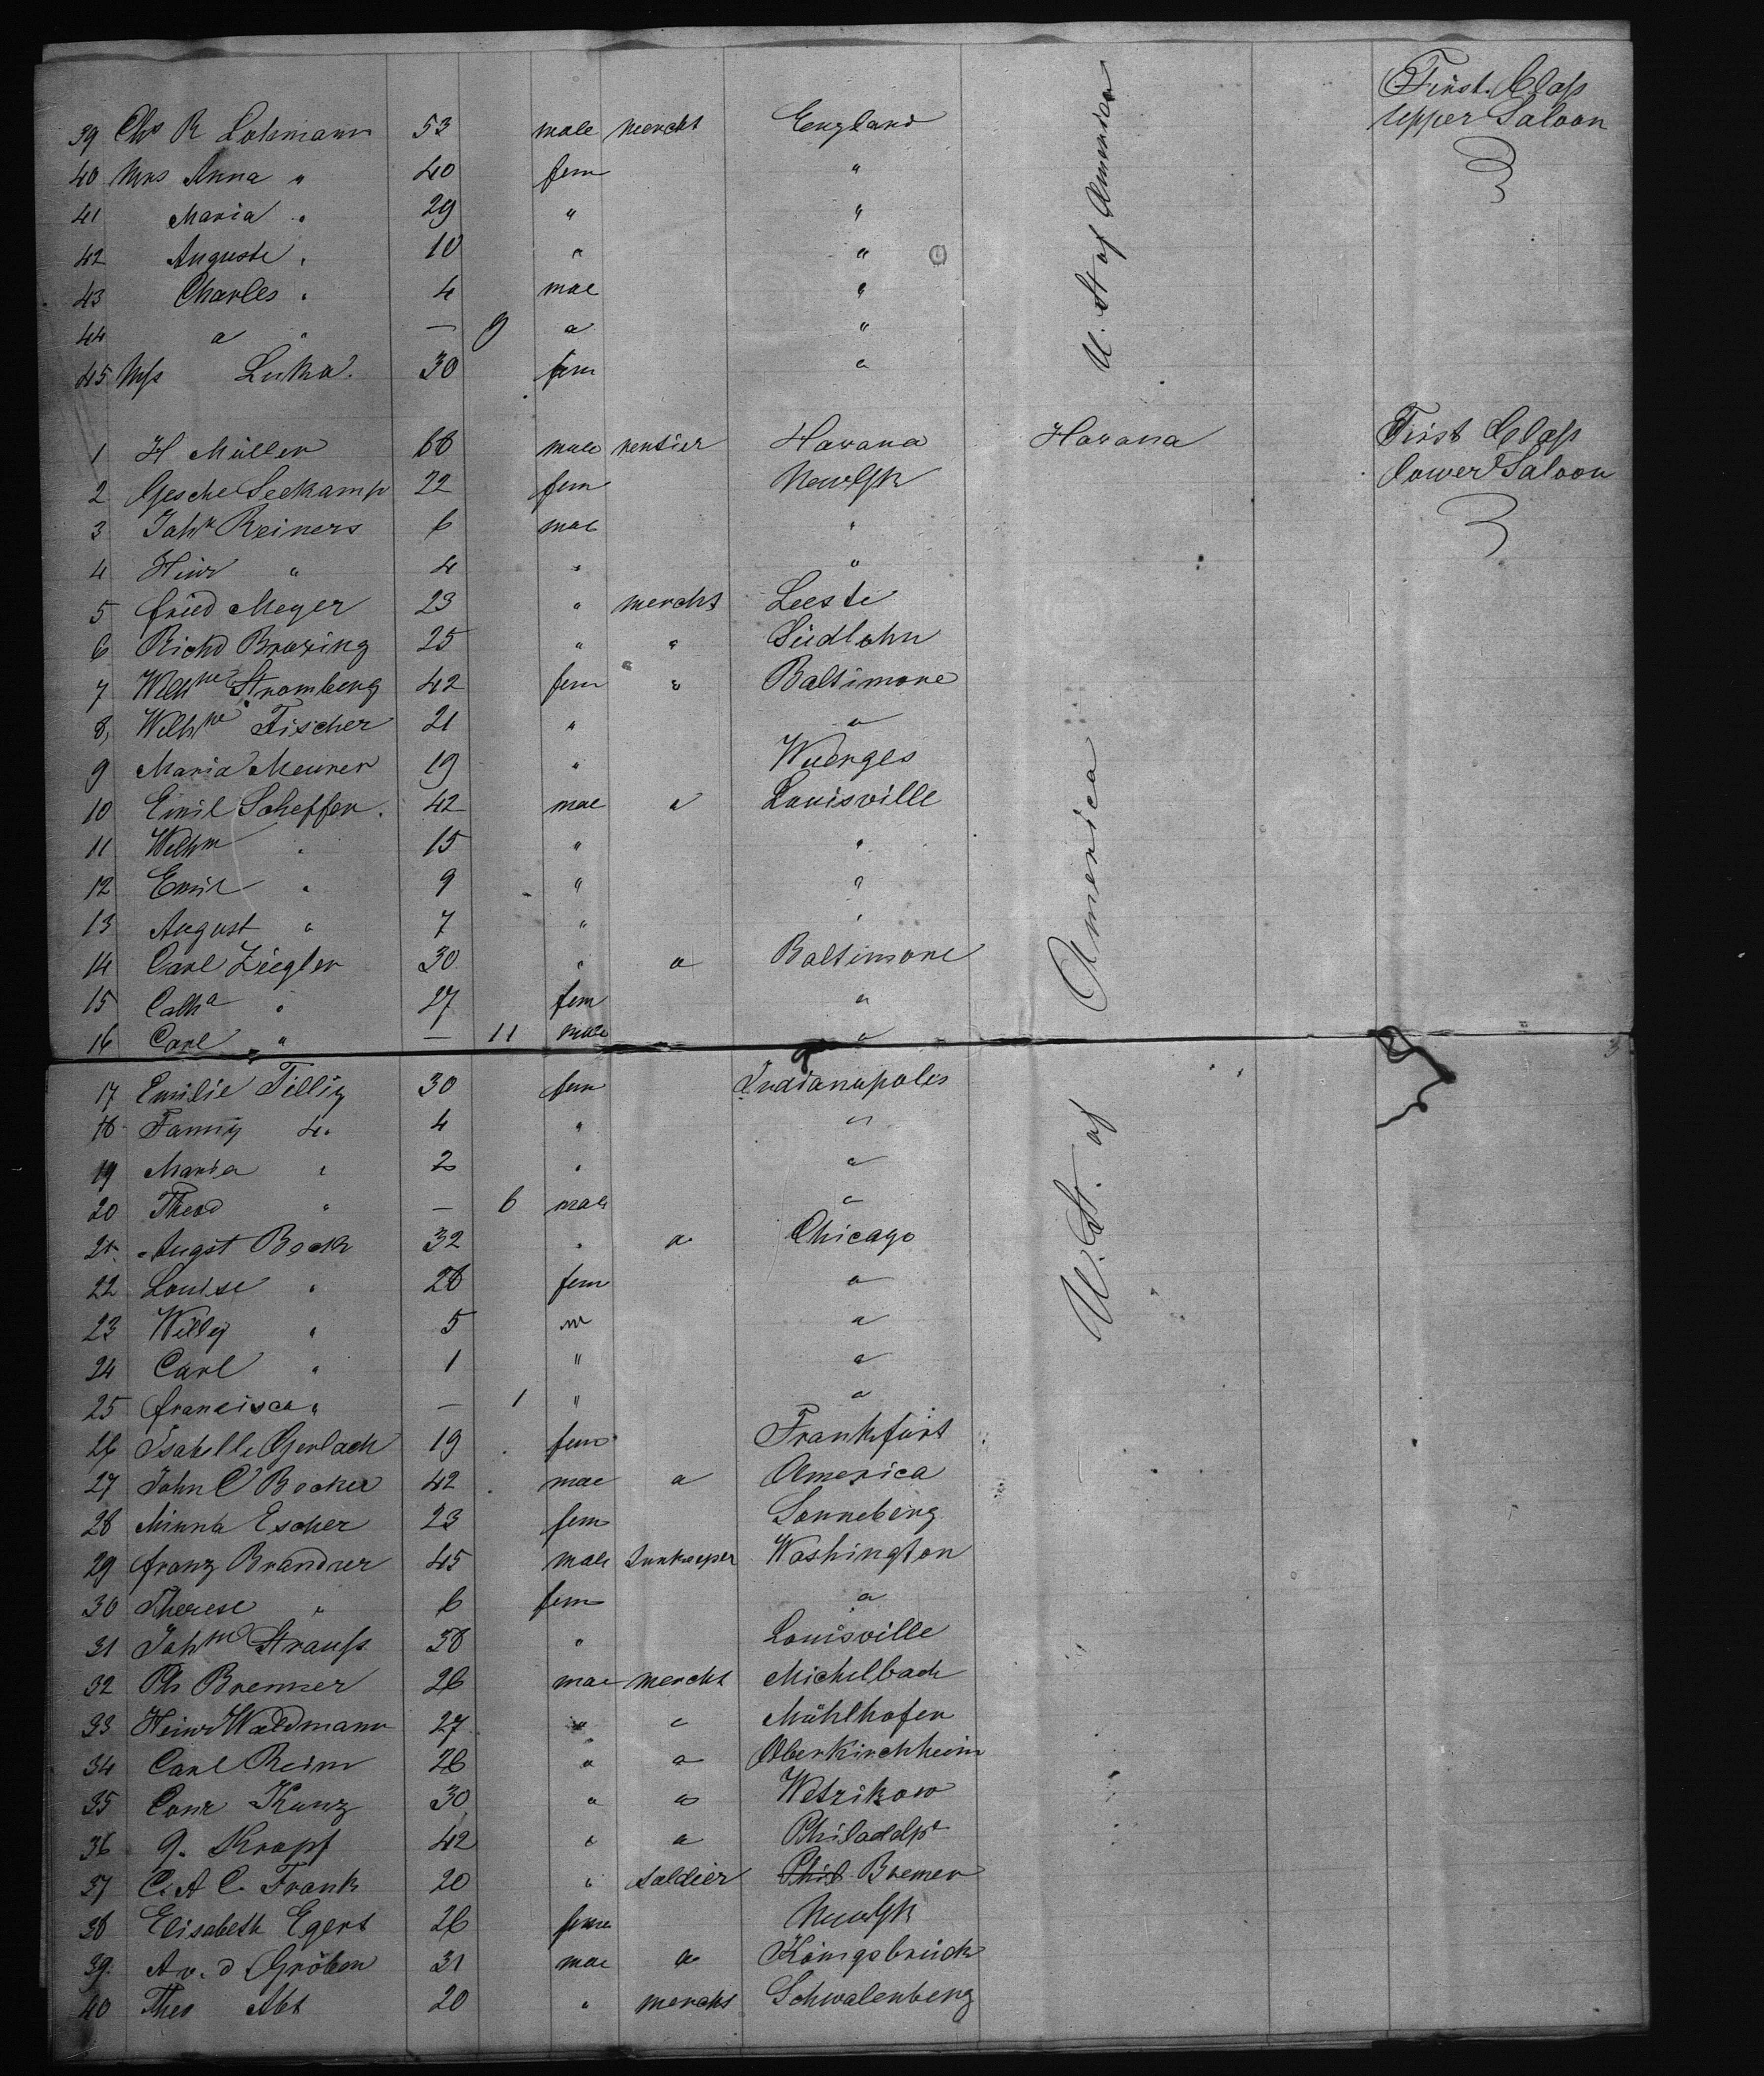 First Class
39 Chs R Lohmann 53 male mercht England Upper Saloon
40 Mrs Anna " 40 fem "
41 Maria " 29 " "
42 Auguste " 10 " "
43 Charles " 4 mal "
44 " " — 9 " "
45 Miss Luka 30 fem "
U. St of America
1 H Müller 68 male rentier Havana Havana First Class
2 Gesche Seekamp 22 fem NewYk lower Saloon
3 Joh Reiners 6 mal "
4 Hinr " 4 " "
5 Fried Meyer 23 " mercht Leeste
6 Richd Broxing 25 " " Südlohn
7 Wilhne Stromberg 42 fem " Baltimore
8 Wilhne Fischer 21 " "
9 Maria Meurer 19 " Wuerges
10 Emil Scheffer 42 mal " Louisville
11 Wilhm " 15 " "
12 Emil " 9 " "
13 August " 7 " "
14 Carl Ziegler 30 " " Baltimore
15 Catha " 27 fem "
16 Carl " — 11 male "
17 Emilie Tillig 30 fem Indianapolis
18 Fanny " 4 " "
19 Maria " 2 " "
20 Theod " — 6 male "
21 Augst Bock 32 " " Chicago
22 Louise " 28 fem "
23 Willy " 5 m "
24 Carl " 1 " "
25 Francisca " — 1 " "
26 Isabelle Gerlach 19 fem Frankfurt
27 John C Becker 42 mal " America
28 Minna Escher 23 fem Sonneberg
29 Franz Brandner 45 male Innkeeper Washington
30 Therese " 6 fem "
31 Johne Strauss 38 " Louisville
32 Ph Bremser 26 mal mercht Michelbach
33 Heinr Waldmann 27 " " Mühlhofen
34 Carl Reim 26 " " Oberkirchheim
35 Conr Kunz 30 " " Wetzikow
36 G. Kropf 42 " " Philadelpa
37 C. A C. Frank 20 " soldier Phil Bremen
38 Elisabeth Egert 26 fem NewYk
39 A v. d Gröben 31 mal " Königsbrück
40 Theo Abt 20 " mercht Schwalenberg
U. St. of America